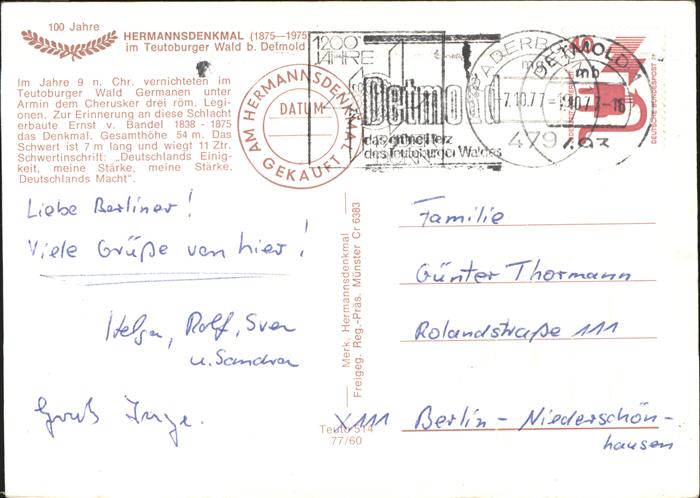 100 Jahre
HERMANNSDENKMAL (1875—1975)
im Teutoburger Wald b. Detmold
Im Jahre 9 n. Chr. vernichteten im
Teutoburger Wald Germanen unter
Armin dem Cherusker drei röm. Legi-
onen. Zur Erinnerung an diese Schlacht
erbaute Ernst v. Bandel 1838 - 1875
das Denkmal. Gesamthöhe 54 m. Das
Schwert ist 7 m lang und wiegt 11 Ztr.
Schwertinschrift: „Deutschlands Einig-
keit, meine Stärke, meine Stärke,
Deutschlands Macht".
AM HERMANNSDENKMAL
DATUM
GEKAUFT
1200
JAHRE
Detmold
das grüne Herz
des Teutoburger Waldes
PADERBORN
-7.10.77
479
DETMOLD 1
mb
40
DEUTSCHE BUNDESPOST
Liebe Berliner!
Viele Grüße von hier!
Helga, Rolf, Sven
u. Sandra
Gruß Inge.
Merk. Hermannsdenkmal
Freigeg. Reg.-Präs. Münster Cr 6383
Teuto 514
77/60
Familie
Günter Thormann
Rolandstraße 111
X 111 Berlin - Niederschön-
hausen